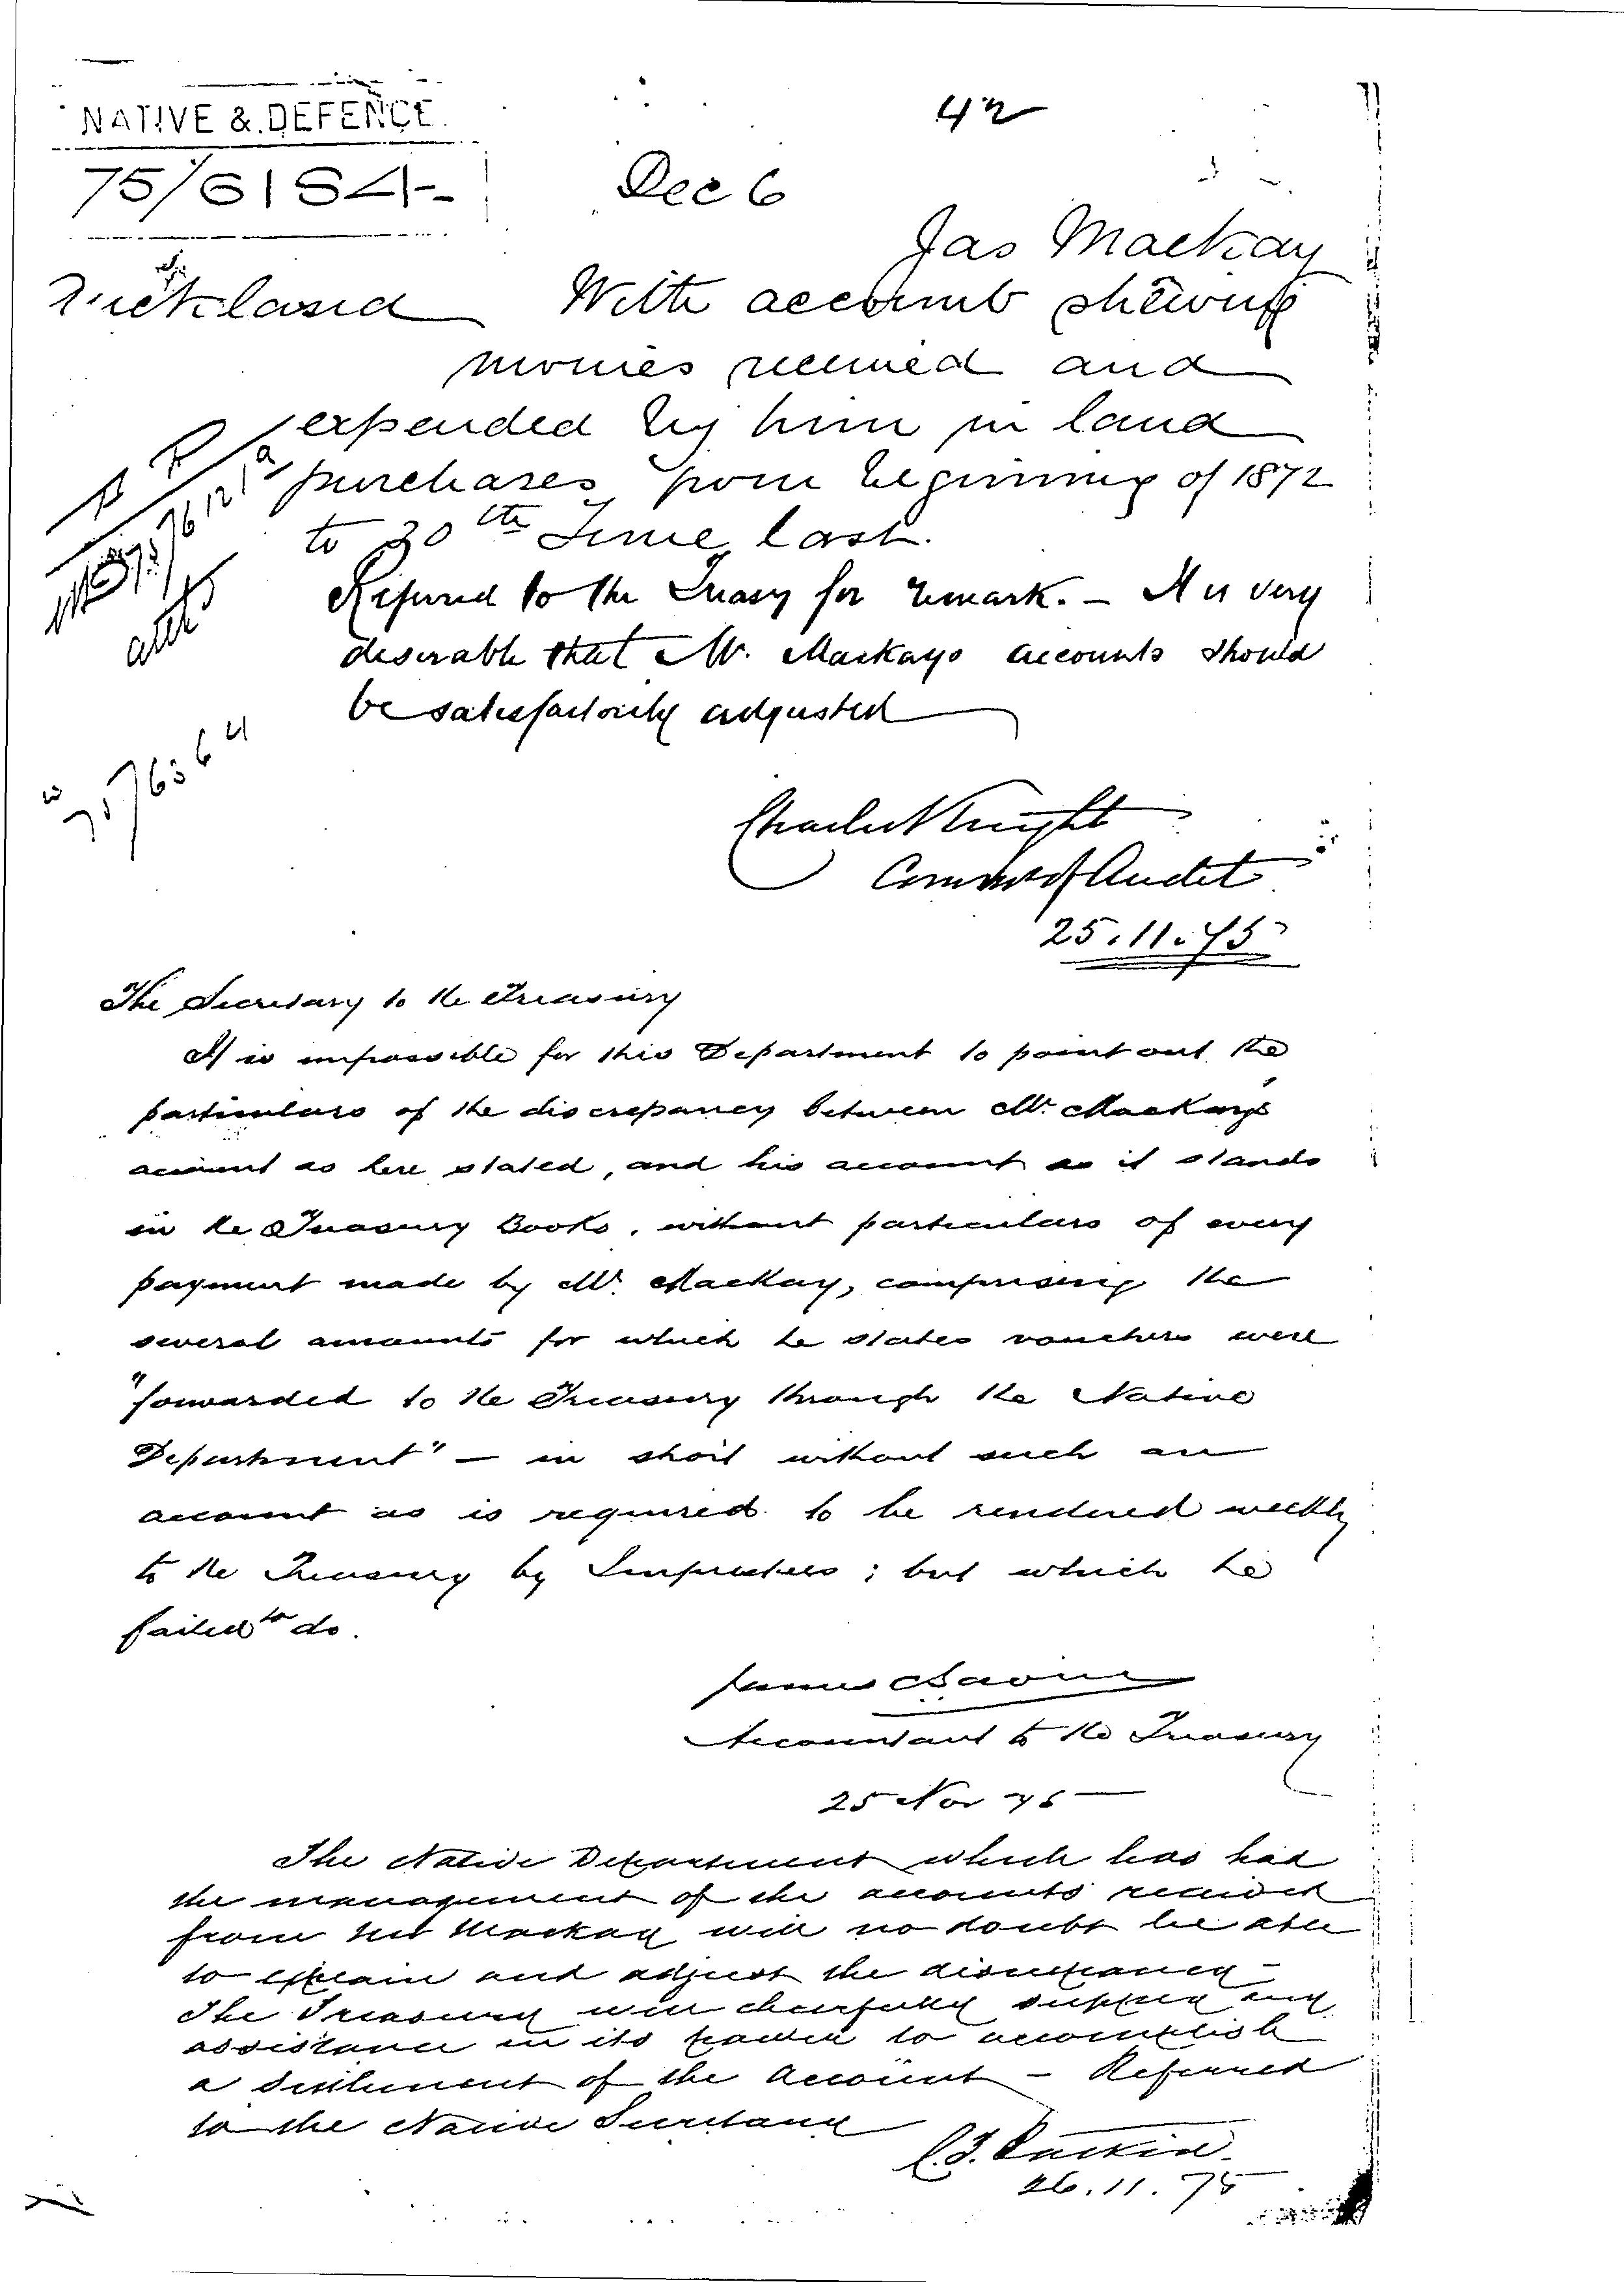 42
NATIVE & DEFENCE.
75/6184
Dec 6
Jas Mackay
Auckland
With accounts shewing
monies received and
expended by him in land
purchases from beginning of 1872
to 30th June last.
Referred to the Treasy for remark. — It is very
desirable that Mr. Mackays accounts should
be satisfactorily adjusted
Charles Knight
Commr of Audit
25.11.75
The Secretary to the Treasury
It is impossible for this Department to point out the
particulars of the discrepancy between Mr. Mackay's
account as here stated, and his account as it stands
in the Treasury Books, without particulars of every
payment made by Mr. Mackay, comprising the
several amounts for which he states vouchers were
"forwarded to the Treasury through the Native
Department" — in short without such an
account as is required to be rendered weekly
to the Treasury by Imprestees; but which he
failed to do.
James
Accountant to the Treasury
25 Nov 75
The Native Department which has had
the management of the accounts received
from Mr Mackay will no doubt be able
to explain and adjust the discrepancy -
The Treasury will cheerfully supply any
assistance in its power to accomplish
a settlement of the Account - Referred
to the Native Secretary
26.11.75